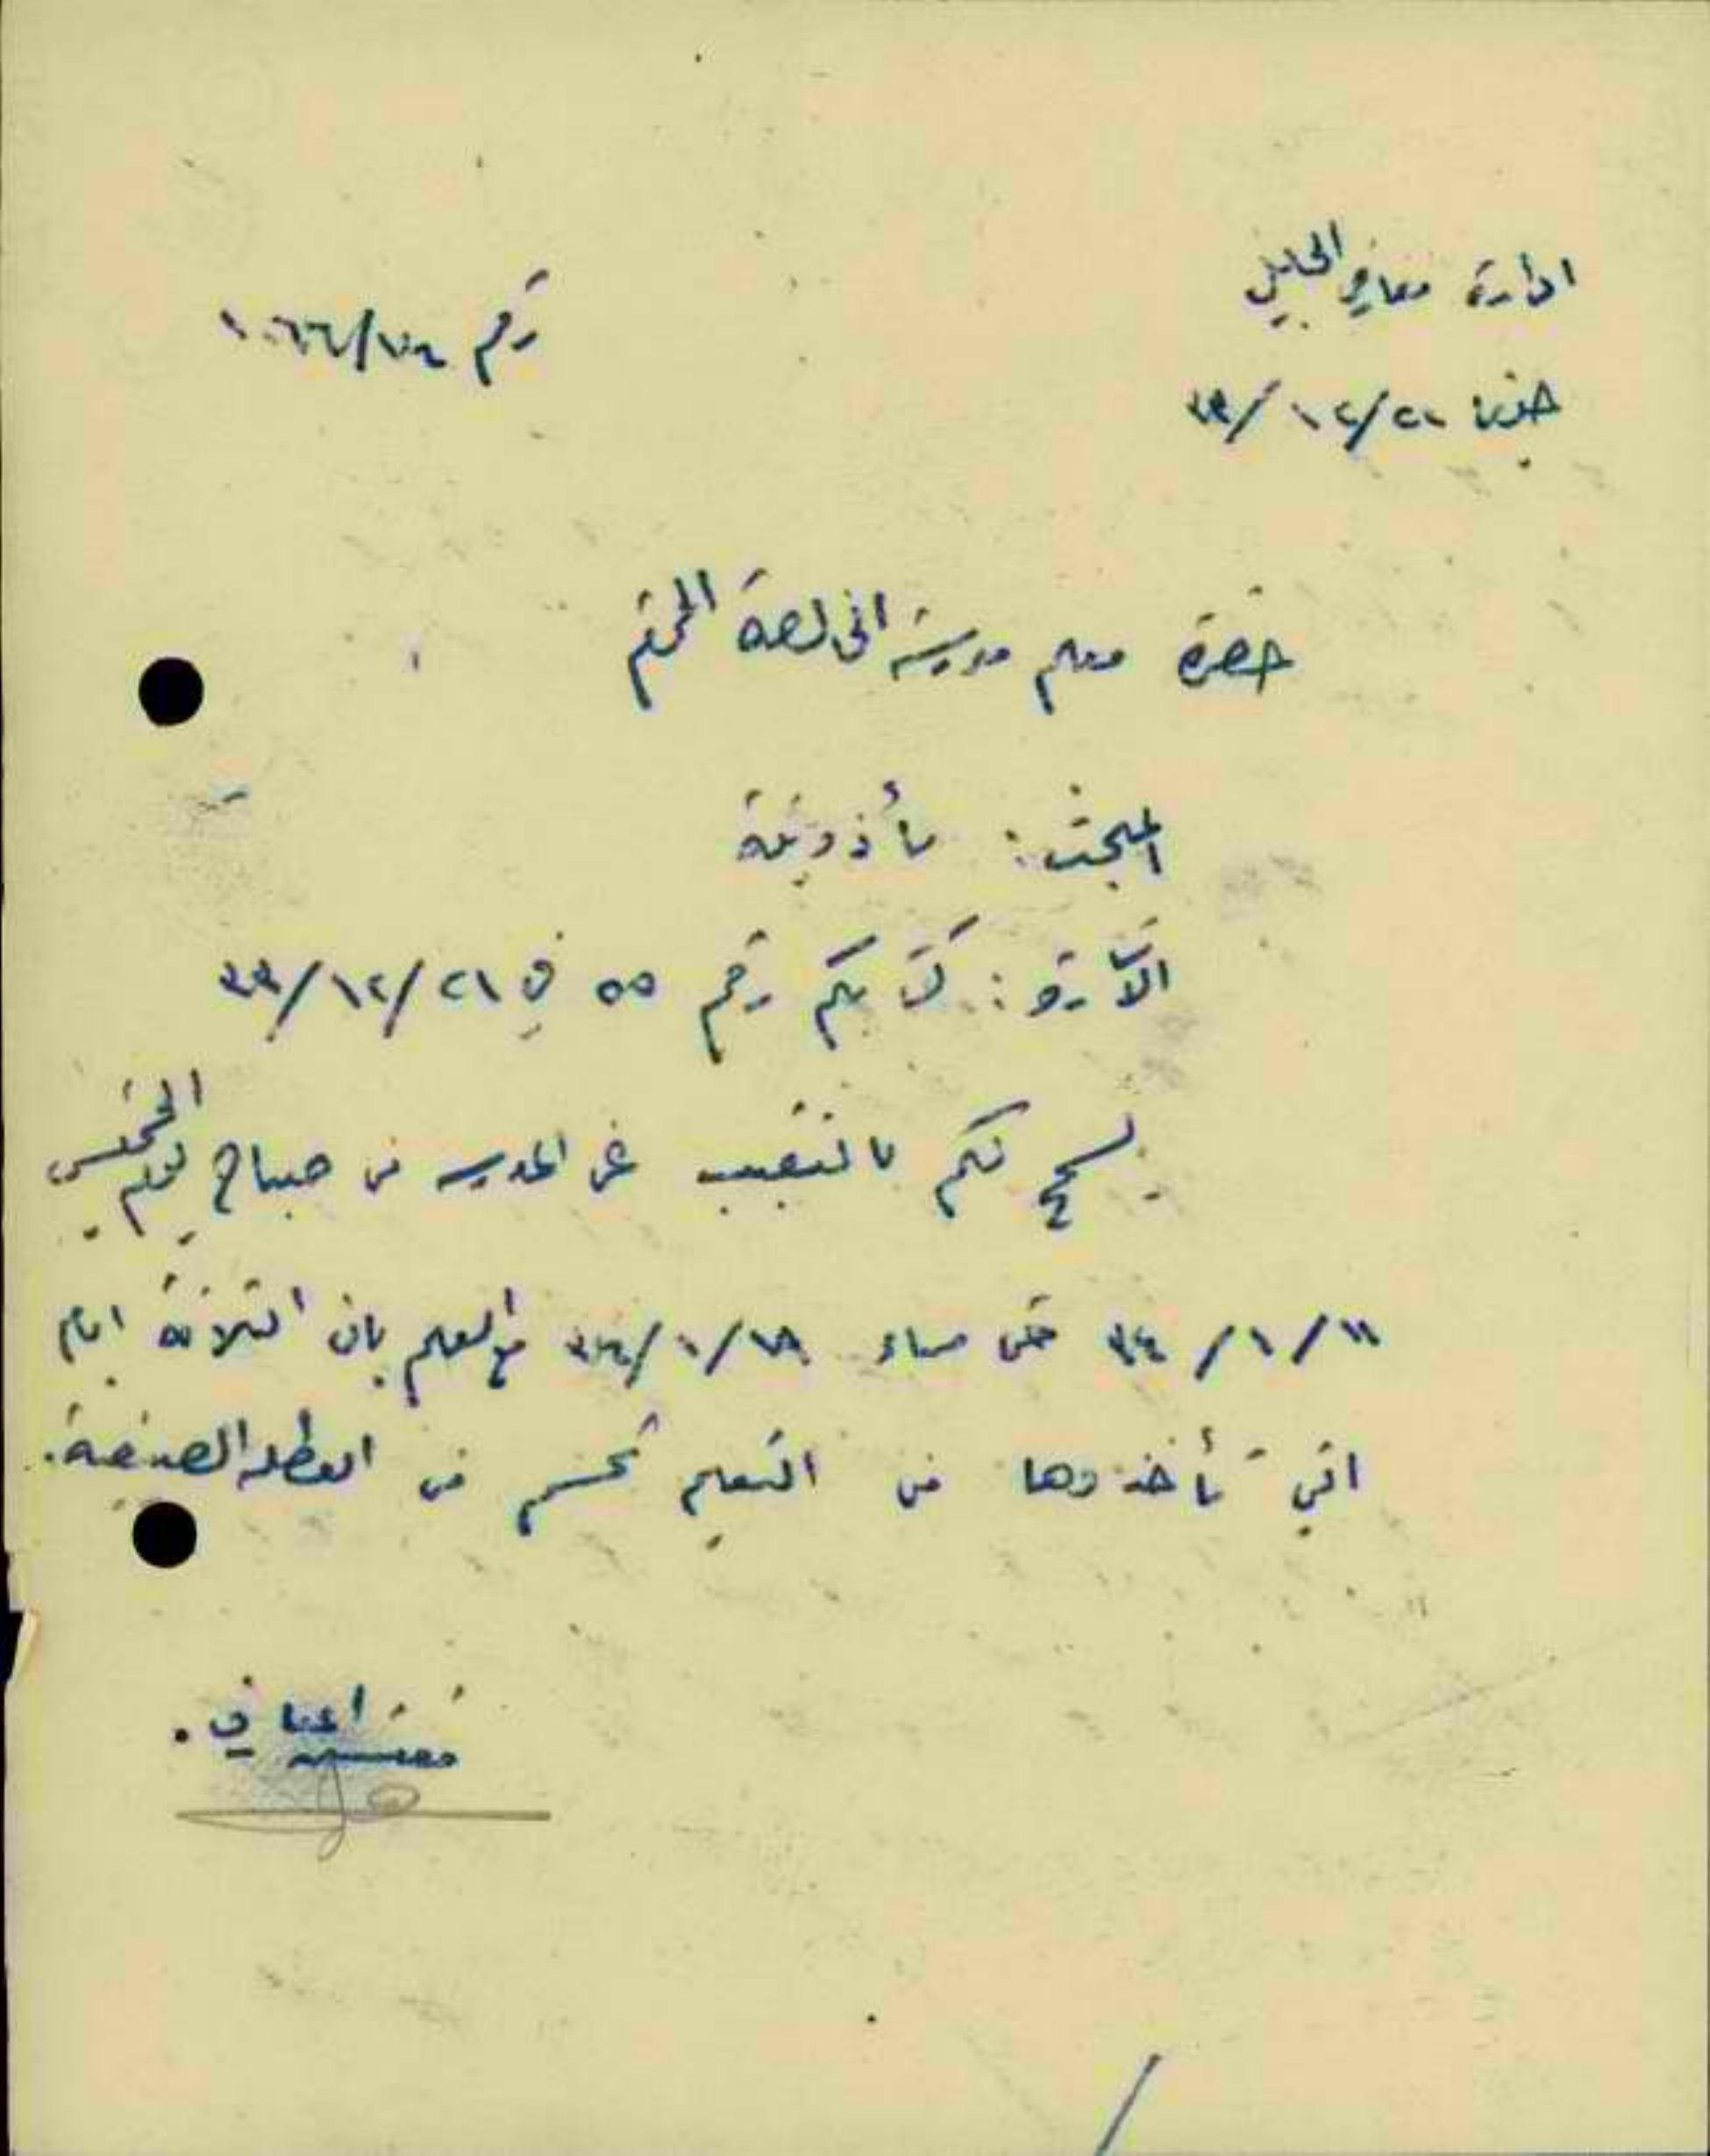 ادارة معارف الجليل
رقم ١٠٦٦/٧٤
حضرة معلم مدرسة الخالصة المحترم
المبحث: مأذونية
الاشارة: كتابكم رقم ٥٥ في ٢١/١٢/٣٣
يسمح لكم بالتغيب عن المدرسه من صباح يوم الخميس
١١/١/٣٤ حتى مساء ١٨/١/٣٤ مع العلم بان الثلاثة ايام
التي تأخذوها من التعليم تحسم من العطله الصيفية.
مفتش المعارف.